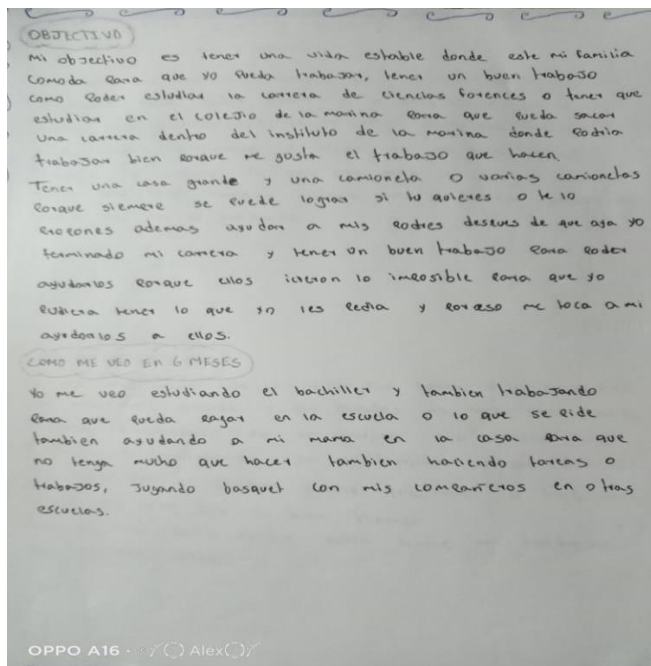 OBJECTIVO
Mi objectivo es tener una vida estable donde este mi familia
comoda para que yo pueda trabajar, tener un buen trabajo
como poder estudiar la carrera de ciencias forences o tener que
estudiar en el colejio de la marina para que pueda sacar
una carrera dentro del instituto de la marina donde podria
trabajar bien porque me gusta el trabajo que hacen.
Tener una casa grande y una camioneta o varias camionetas
porque siempre se puede lograr si tu quieres o te lo
propones ademas ayudar a mis padres despues de que aja yo
terminado mi carrera y tener un buen trabajo para poder
ayudarlos porque ellos icieron lo imposible para que yo
pudiera tener lo que yo les pedia y por eso me toca a mi
ayudarlos a ellos.
COMO ME VEO EN 6 MESES
Yo me veo estudiando el bachiller y tambien trabajando
para que pueda pagar en la escuela o lo que se pide
tambien ayudando a mi mama en la casa para que
no tenga mucho que hacer tambien haciendo tareas o
trabajos, jugando basquet con mis compañeros en otras
escuelas.
OPPO A16 · Alex